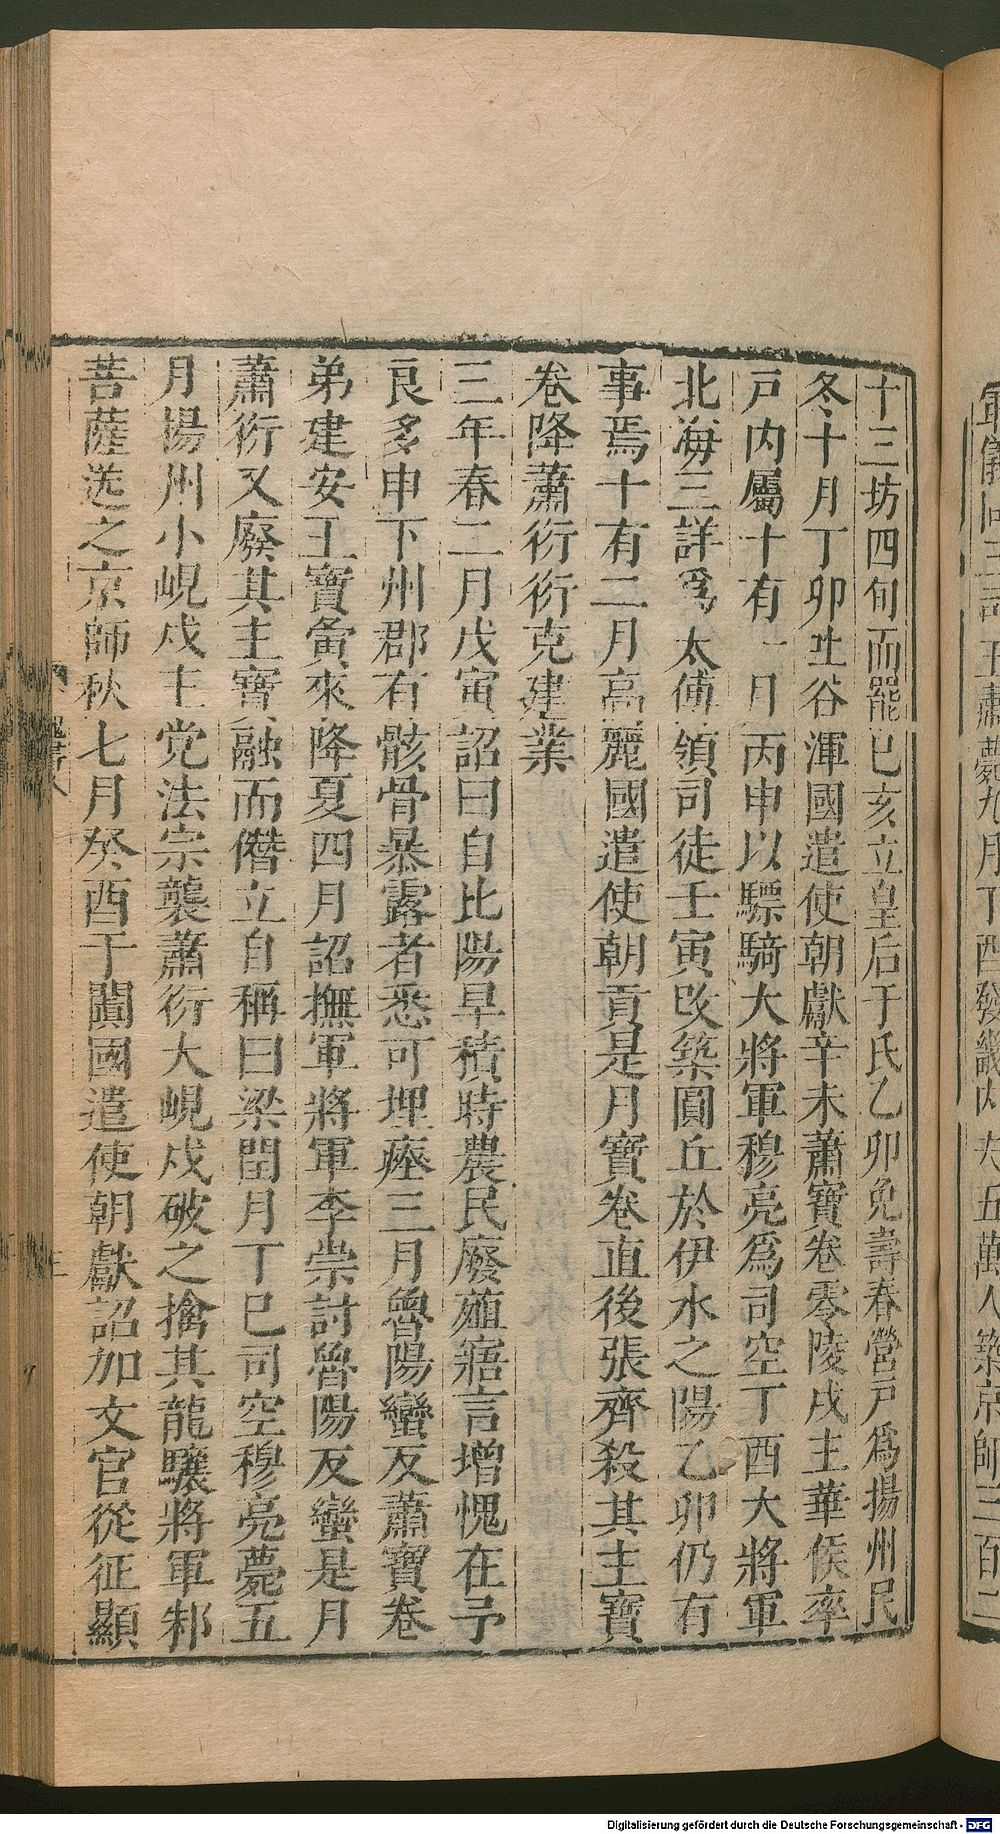 十三坊四旬而罷已亥立皇后于氏乙卯免壽春營戸爲揚州民
冬十月丁卯吐谷渾國遣使朝獻辛未蕭寶卷零陵戍主華侯率
戸内屬十有一月丙申以驃騎大將軍穆亮爲司空丁酉大將軍
北海王詳爲太傅領司徒壬寅改築圓丘於伊水之陽乙卯仍有
事焉十有二月高麗國遣使朝貢是月寶卷直後張齊殺其主寶
卷降蕭衍衍克建業
三年春二月戊寅詔曰自比陽旱積時農民廢殖寤言增愧在予
良多申下州郡有骸骨暴露者悉可埋瘞三月魯陽蠻反蕭寶卷
弟建安王寶夤來降夏四月詔撫軍將軍李崇討魯陽反蠻是月
蕭衍又廢其主寶融而僭立自稱曰梁閏月丁巳司空穆亮薨五
月揚州小峴戍主党法宗襲蕭衍大峴戍破之擒其龍驤將軍邾
菩薩送之京師秋七月癸酉于闐國遣使朝獻詔加文官從征顯
Digitalisierung gefördert durch die Deutsche Forschungsgemeinschaft - DFG